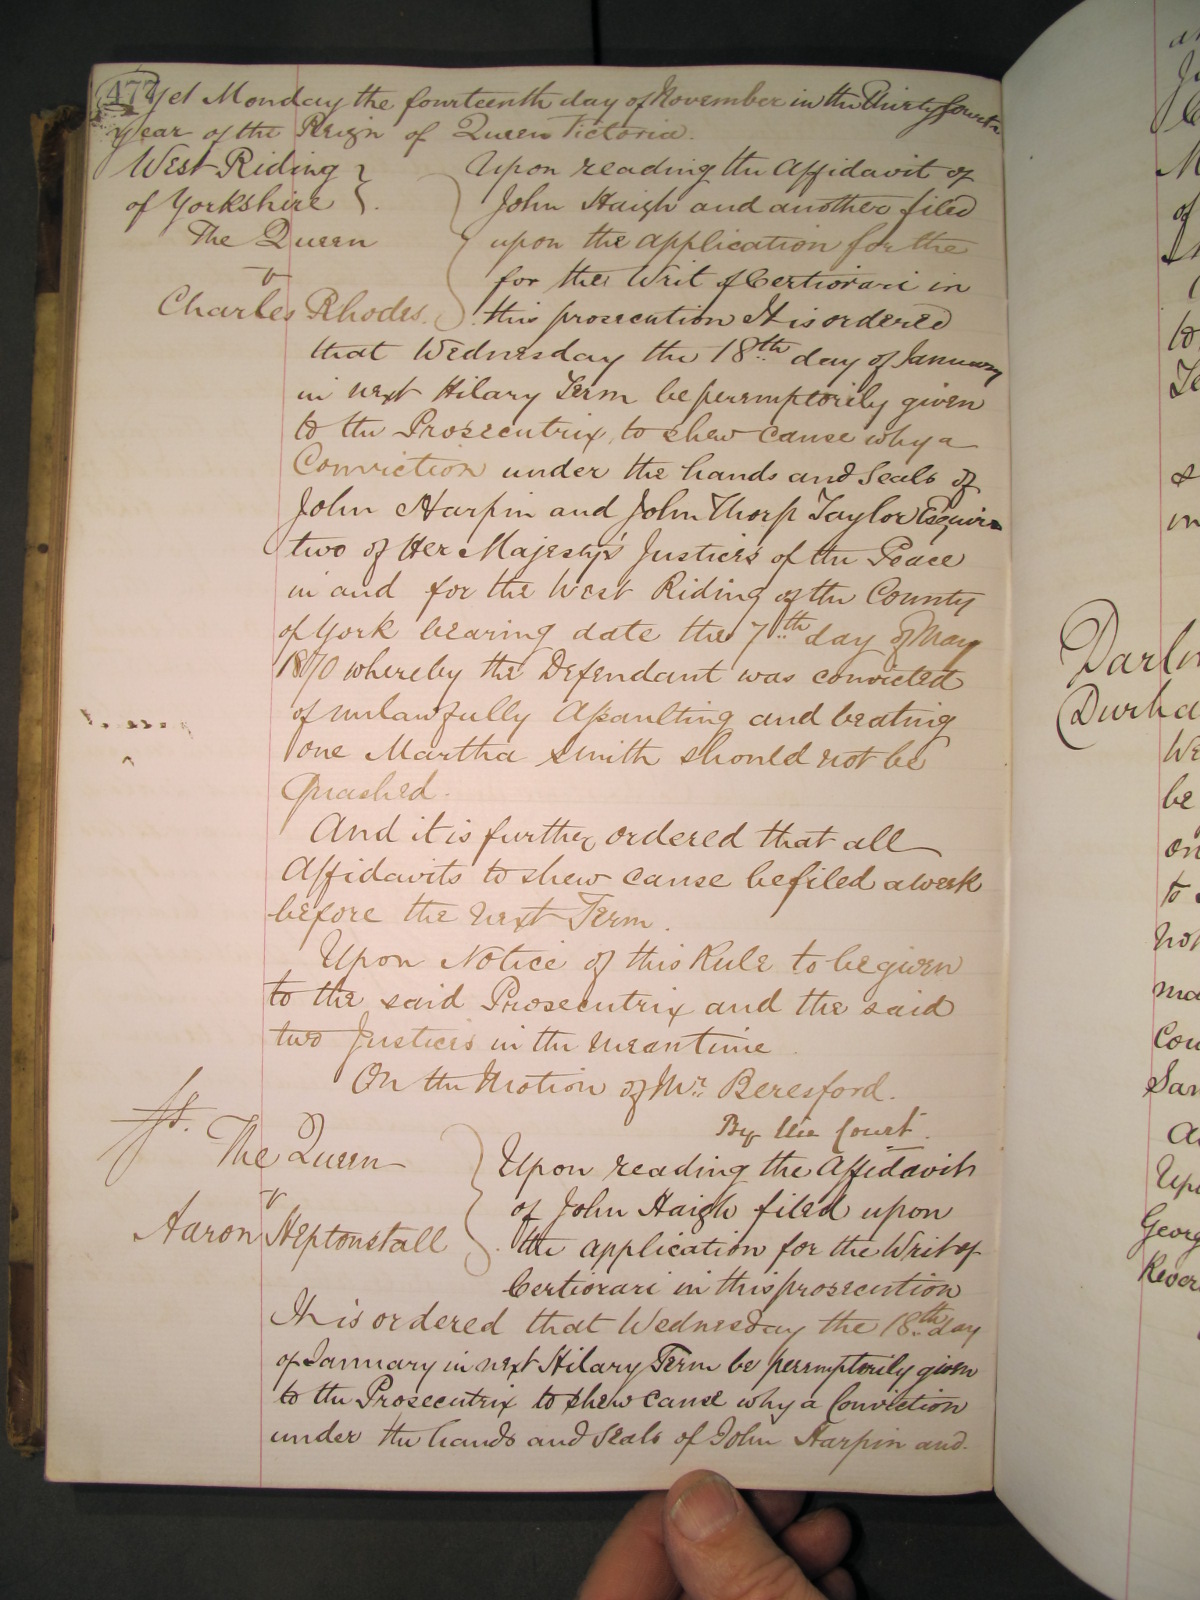 477
Yet Monday the fourteenth day of November in the Thirty fourth
year of the Reign of Queen Victoria.
West Riding
of Yorkshire
The Queen
v
Charles Rhodes.
Upon reading the Affidavit of
John Haigh and another filed
upon the application for the
for the Writ of Certiorari in
this prosecution It is ordered
that Wednesday the 18th day of January
in next Hilary Term be peremptorily given
to the Prosecutrix, to shew cause why a
Conviction under the hands and Seals of
John Harpin and John Thorp Taylor Esquires
two of Her Majesty's Justices of the Peace
in and for the West Riding of the County
of York bearing date the 7th day of May
1870 whereby the Defendant was convicted
of unlawfully Assaulting and beating
one Martha Smith should not be
quashed.
And it is further ordered that all
Affidavits to shew cause be filed a week
before the next Term.
Upon Notice of this Rule to be given
to the said Prosecutrix and the said
two Justices in the meantime
On the Motion of Mr. Beresford.
By the Court.
The Queen
v
Aaron Heptonstall
Upon reading the Affidavit
of John Haigh filed upon
the application for the Writ of
Certiorari in this prosecution
It is ordered that Wednesday the 18th day
of January in next Hilary Term be peremptorily given
to the Prosecutrix to shew cause why a Conviction
under the hands and Seals of John Harpin and